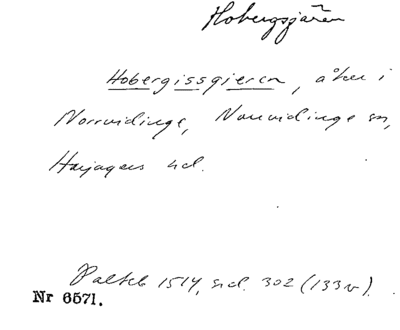 Hobergsjären
Hobergissgieren, åker i
Norrvidinge, Norrvidinge sn,
Harjagers hd.
Palteb 1514, sid. 302 (133v).
Nr 6571.